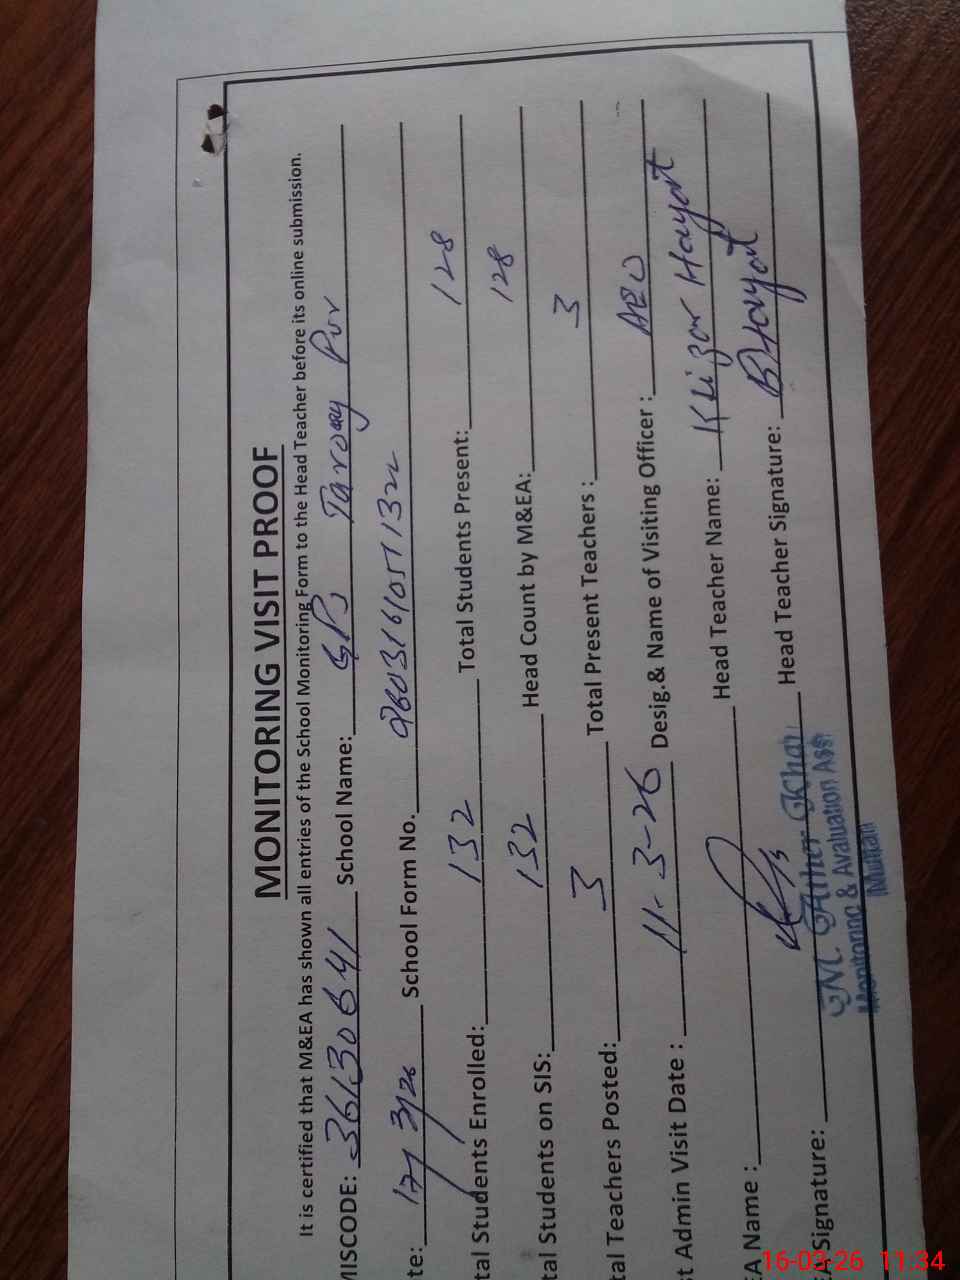 MONITORING VISIT PROOF
It is certified that M&EA has shown all entries of the School Monitoring Form to the Head Teacher before its online submission.
MISCODE: 36130641 School Name: GPS Pur
te: 3/26 School Form No.
tal Students Enrolled: 132 Total Students Present: 128
tal Students on SIS: 132 Head Count by M&EA: 128
tal Teachers Posted: 3 Total Present Teachers : 3
t Admin Visit Date : 11-3-26 Desig.& Name of Visiting Officer : AEO
EA Name : Head Teacher Name: Khizar Hayat
Signature: Head Teacher Signature: Hayat
M. Ather Khan
Monitoring & Avaluation Ass
Multan
16-03-26 11:34